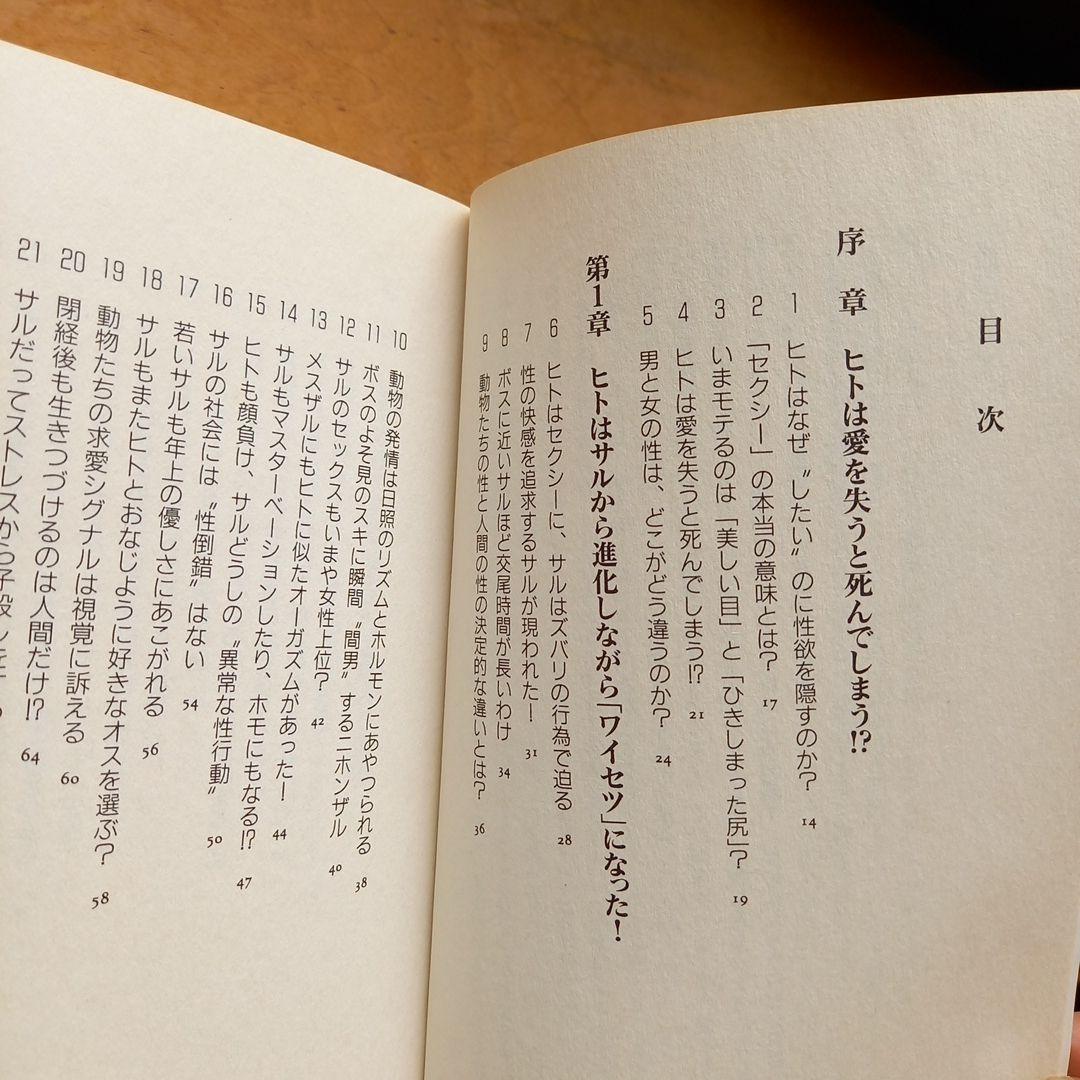 目次
序章 ヒトは愛を失うと死んでしまう!?
1 ヒトはなぜ〝したい〟のに性欲を隠すのか? 14
2 「セクシー」の本当の意味とは? 17
3 いまモテるのは「美しい目」と「ひきしまった尻」? 19
4 ヒトは愛を失うと死んでしまう!? 21
5 男と女の性は、どこがどう違うのか? 24
第1章 ヒトはサルから進化しながら「ワイセツ」になった!
6 ヒトはセクシーに、サルはズバリの行為で迫る 28
7 性の快感を追求するサルが現われた! 31
8 ボスに近いサルほど交尾時間が長いわけ 34
9 動物たちの性と人間の性の決定的な違いとは? 36
10 動物の発情は日照のリズムとホルモンにあやつられる 38
11 ボスのよそ見のスキに瞬間〝間男〟するニホンザル 40
12 サルのセックスもいまや女性上位? 42
13 メスザルにもヒトに似たオーガズムがあった! 44
14 サルもマスターベーションしたり、ホモにもなる!? 47
15 ヒトも顔負け、サルどうしの〝異常な性行動〟 50
16 サルの社会には〝性倒錯〟はない 54
17 若いサルも年上の優しさにあこがれる 56
18 サルもまたヒトとおなじように好きなオスを選ぶ? 58
19 動物たちの求愛シグナルは視覚に訴える 60
20 閉経後も生きつづけるのは人間だけ!? 64
21 サルだってストレスから子殺しを